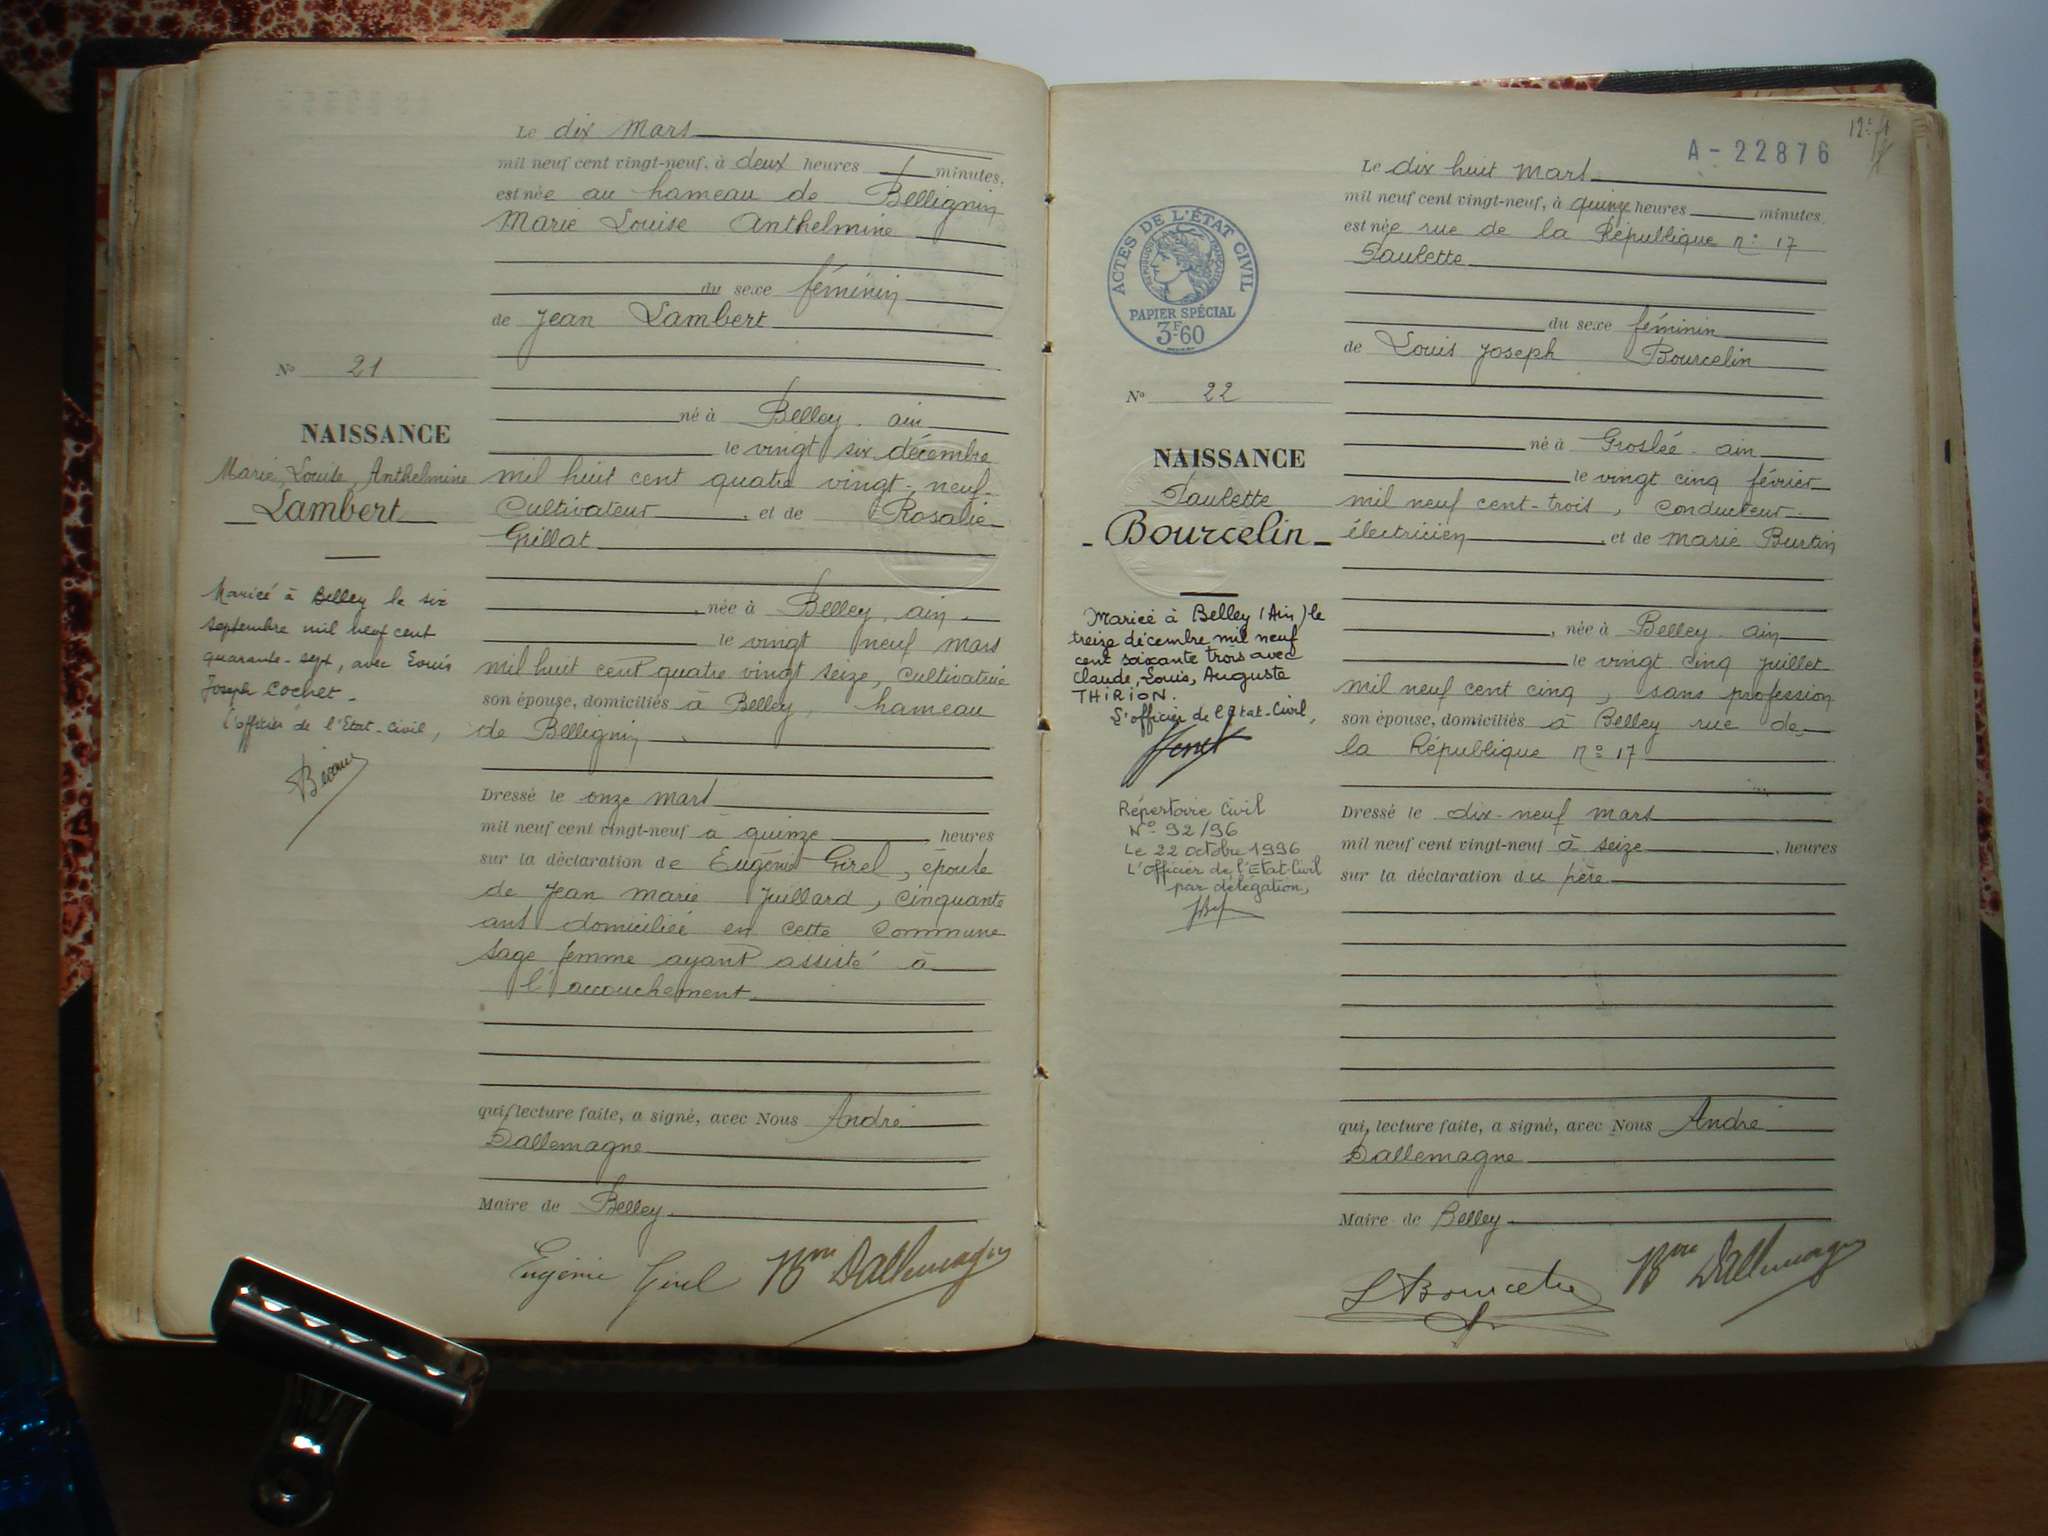 Le dix mars
mil neuf cent vingt-neuf, à deux heures minutes,
est née au hameau de Bellignin
Marie Louise Anthelmine
du sexe féminin
de Jean Lambert
né à Belley. ain
le vingt six décembre
mil huit cent quatre vingt-neuf
Cultivateur, et de Rosalie
Grillat
, née à Belley, ain.
le vingt neuf mars
mil huit cent quatre vingt seize, cultivatrice
son épouse, domiciliés à Belley, hameau
de Bellignin
Dressé le onze mars
mil neuf cent vingt-neuf à quinze, heures
sur la déclaration de Eugénie Girel, épouse
de Jean Marie Juillard, cinquante
ans domiciliée en cette commune
sage femme ayant assisté à
l'accouchement.
qui, lecture faite, a signé, avec Nous André
Dallemagne
Maire de Belley.
Eugénie Girel Bon Dallemagne
No 21
NAISSANCE
Marie, Louise, Anthelmine
Lambert
Mariée à Belley le six
septembre mil neuf cent
quarante-sept, avec Louis
Joseph Cochet.
L'officier de l'Etat-Civil,
A-22876
Le dix huit mars
mil neuf cent vingt-neuf, à quinze heures minutes
est née rue de la République n° 17
Paulette
du sexe féminin
de Louis Joseph Bourcelin
né à Groslée. ain
le vingt cinq février
mil neuf cent-trois, conducteur
électricien, et de Marie Burtin
, née à Belley. ain
le vingt cinq juillet
mil neuf cent cinq, sans profession
son épouse, domiciliés à Belley rue de
la République n° 17
Dressé le dix-neuf mars
mil neuf cent vingt-neuf à seize, heures
sur la déclaration du père
qui, lecture faite, a signé, avec Nous André
Dallemagne
Maire de Belley
L Bourcelin Bon Dallemagne
ACTES DE L'ÉTAT CIVIL
PAPIER SPÉCIAL
3F60
No 22
NAISSANCE
Paulette
Bourcelin
Mariée à Belley (Ain) le
treize décembre mil neuf
cent soixante trois avec
Claude, Louis, Auguste
THIRION.
L'officier de l'Etat-Civil,
Répertoire Civil
N° 92/96
Le 22 octobre 1996
L'Officier de l'Etat-Civil
par délégation,